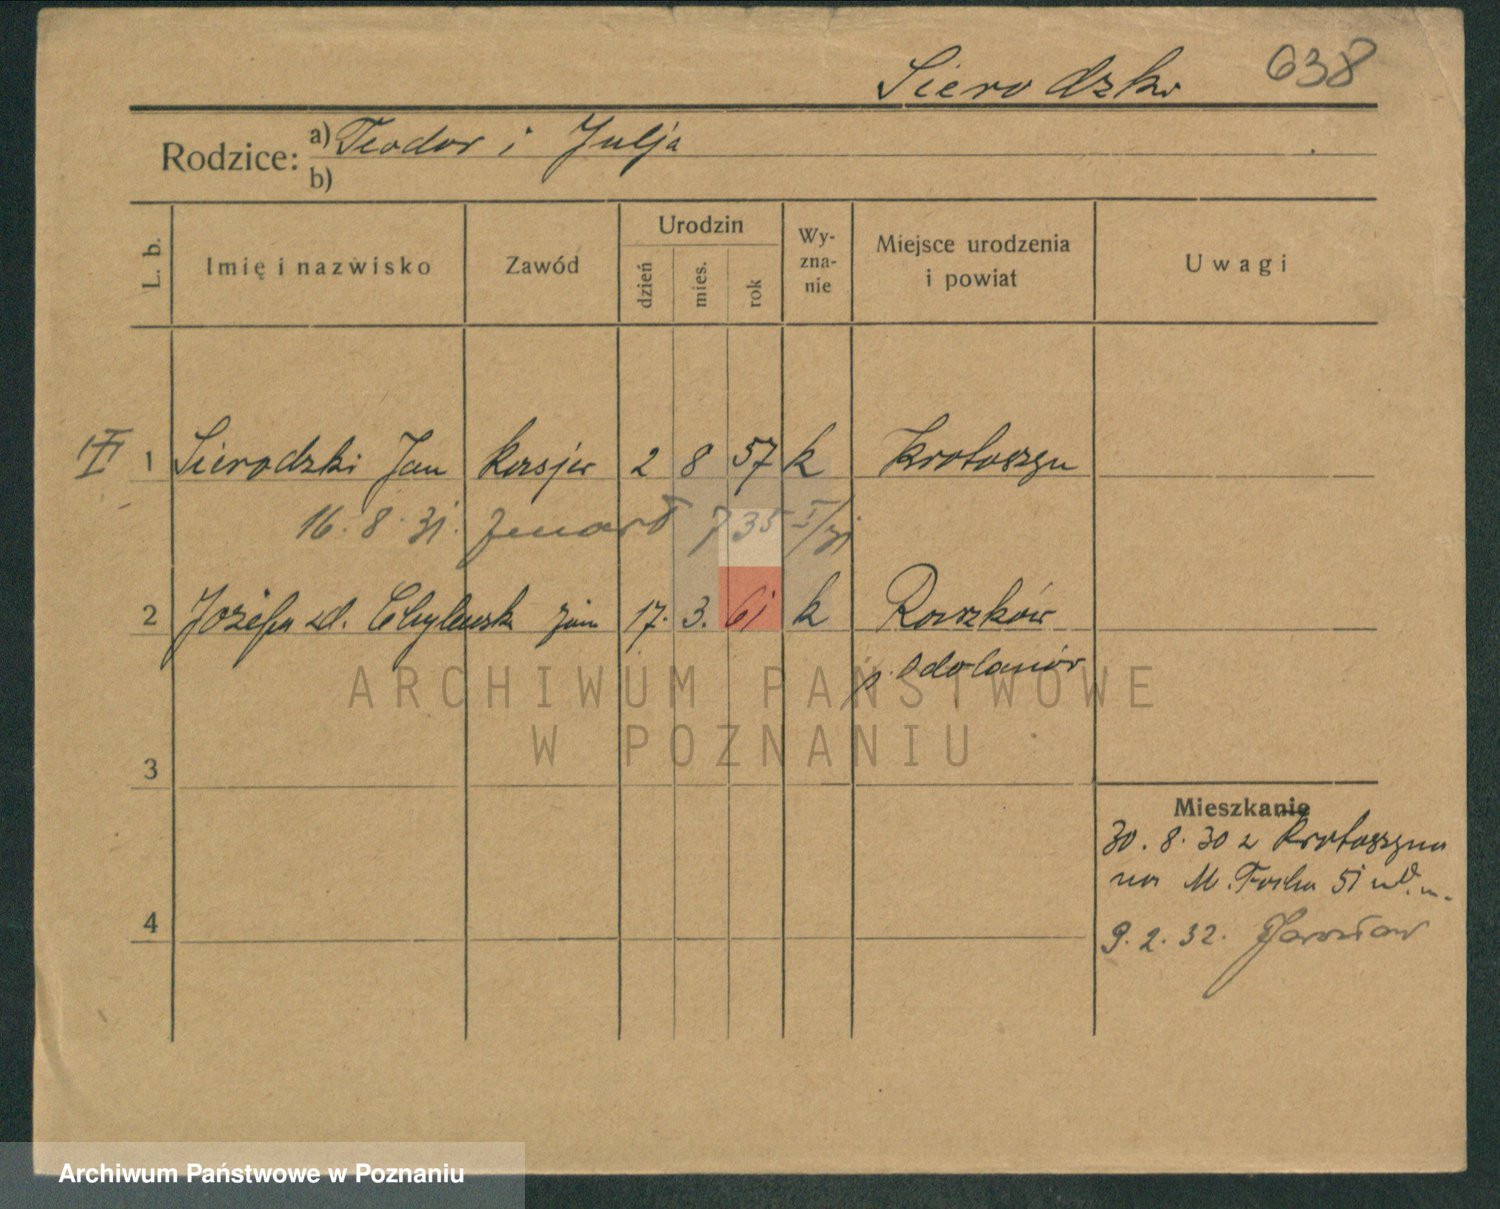 Sierodzki 638
Rodzice: a) Teodor i Julja
b)
L. b. Imię i nazwisko Zawód Urodzin dzień mies. rok Wy-zna-nie Miejsce urodzenia i powiat Uwagi
1 Sierodzki Jan kasjer 2 8 57 k Krotoszyn
16. 8. 31. zmarł 735 I/31
2 Józefa zd. 17. 3. 61 k Raszków
p. Odolanów
ARCHIWUM PAŃSTWOWE
W POZNANIU
3
Mieszkanie
30. 8. 30 z Krotoszyna
na M. Focha 51
4
9. 2. 32. Jarosław
Archiwum Państwowe w Poznaniu